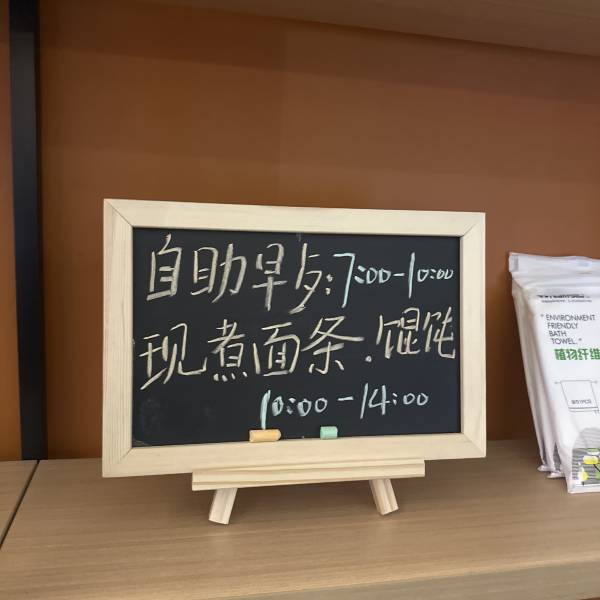 自助早歺:7:00-10:00
现煮面条.馄饨
10:00-14:00
"ENVIRONMENT
FRIENDLY
BATH
TOWEL."
植物纤维